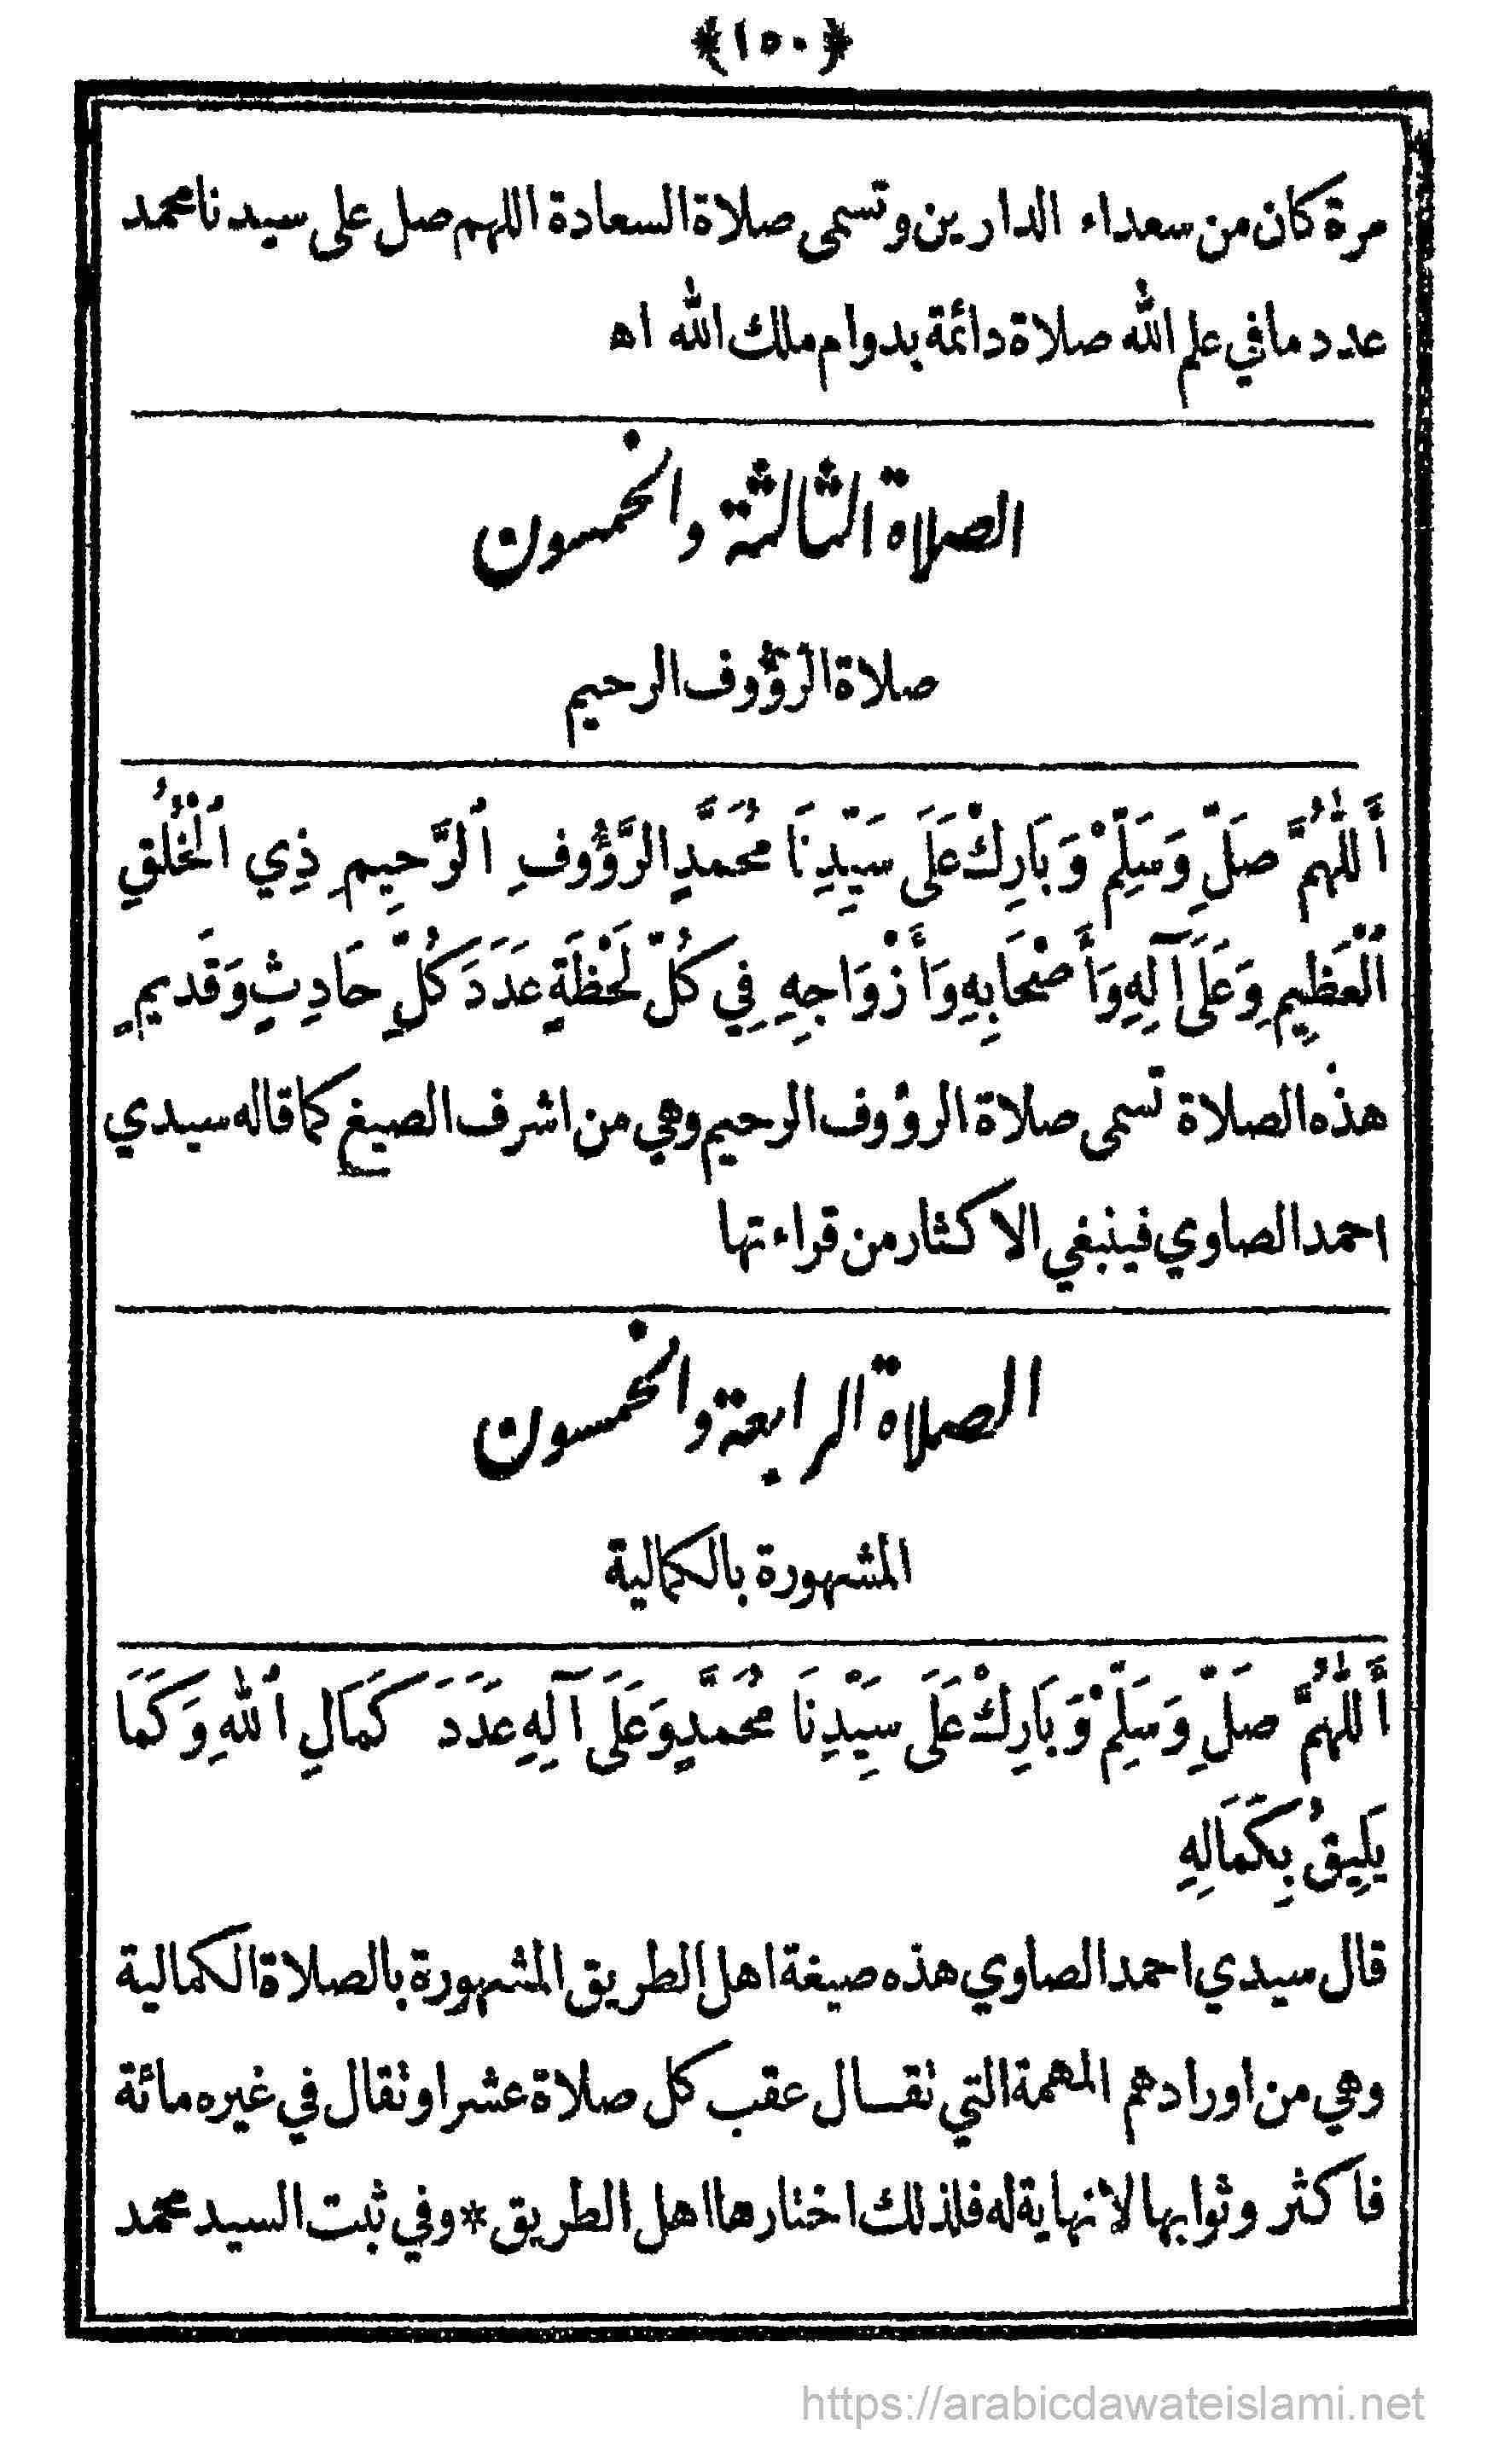 ﴿١٥٠﴾
مرة كان من سعداء الدارين وتسمى صلاة السعادة اللهم صل على سيدنا محمد
عدد ما في علم الله صلاة دائمة بدوام ملك الله اه
الصلاة الثالثة والخمسون
صلاة الرؤوف الرحيم
أَللّٰهُمَّ صَلِّ وَسَلِّمْ وَبَارِكْ عَلَى سَيِّدِنَا مُحَمَّدٍ الرَّؤُوفِ ٱلرَّحِيمِ ذِي ٱلْخُلُقِ
ٱلْعَظِيمِ وَعَلَى آلِهِ وَأَصْحَابِهِ وَأَزْوَاجِهِ فِي كُلِّ لَحْظَةٍ عَدَدَ كُلِّ حَادِثٍ وَقَدِيمٍ
هذه الصلاة تسمى صلاة الرؤوف الرحيم وهي من اشرف الصيغ كما قاله سيدي
احمد الصاوي فينبغي الاكثار من قراءتها
الصلاة الرابعة والخمسون
المشهورة بالكمالية
أَللّٰهُمَّ صَلِّ وَسَلِّمْ وَبَارِكْ عَلَى سَيِّدِنَا مُحَمَّدٍ وَعَلَى آلِهِ عَدَدَ كَمَالِ ٱللهِ وَكَمَا
يَلِيقُ بِكَمَالِهِ
قال سيدي احمد الصاوي هذه صيغة اهل الطريق المشهورة بالصلاة الكمالية
وهي من اورادهم المهمة التي تقال عقب كل صلاة عشرا وتقال في غيره مائة
فاكثر وثوابها لا نهاية له فلذلك اختارها اهل الطريق * وفي ثبت السيد محمد
https://arabicdawateislami.net